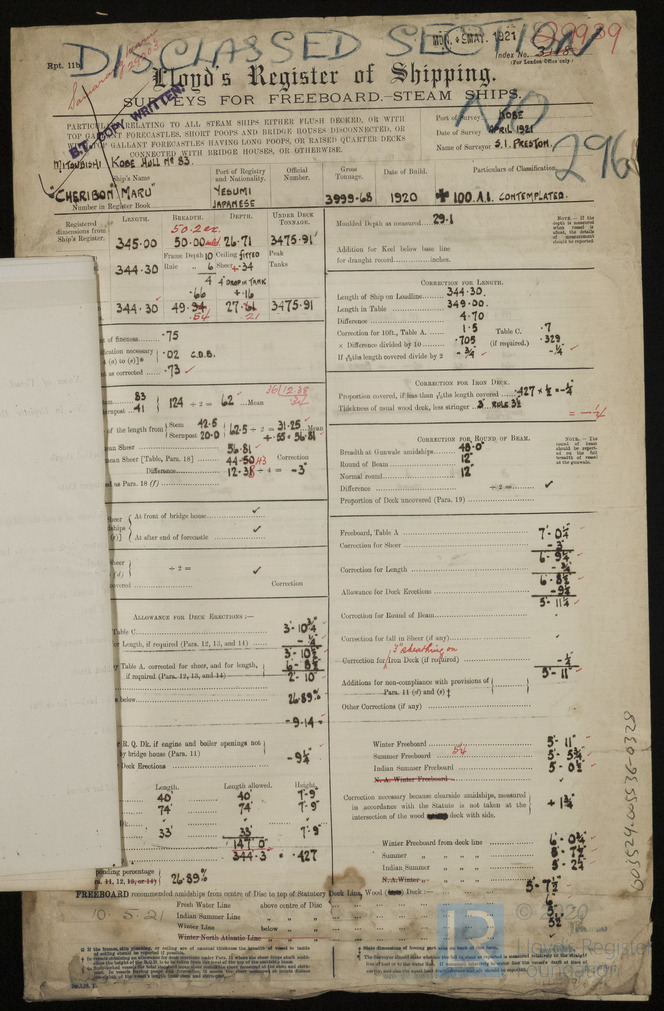 DISCLASSED SECTION
MON. 9 MAY. 1921
Rpt. 11b.
Index No.
(For London Office only)
Lloyd's Register of Shipping.
SURVEYS FOR FREEBOARD.—STEAM SHIPS.
B.T. COPY WRITTEN.
PARTICULARS RELATING TO ALL STEAM SHIPS EITHER FLUSH DECKED, OR WITH
TOP GALLANT FORECASTLES, SHORT POOPS AND BRIDGE HOUSES DISCONNECTED, OR
WITH TOP GALLANT FORECASTLES HAVING LONG POOPS, OR RAISED QUARTER DECKS
CONNECTED WITH BRIDGE HOUSES, OR OTHERWISE.
Port of Survey KOBE
Date of Survey APRIL 1921
Name of Surveyor S.I. PRESTON.
NO
296
MITSUBISHI KOBE HULL Nº 83.
Ship's Name
Port of Registry and Nationality.
Official Number.
Gross Tonnage.
Date of Build.
Particulars of Classification.
"CHERIBON MARU"
YESUMI
JAPANESE
3999-68
1920
100.A.1. CONTEMPLATED.
Number in Register Book
Registered dimensions from Ship's Register.
LENGTH. BREADTH. DEPTH. UNDER DECK TONNAGE.
50.2 ex.
345.00 50.00 mld 26.71 3475.91
344.30
Frame Depth 10 Ceiling FITTED Peak
Rule 6 Sheer + .34 Tanks
4 4" DROP IN TANK
.66 + .16
344.30 49.34 27.61 3475.91
.54 21
Moulded Depth as measured 29.1
Addition for Keel below base line
for draught record inches.
NOTE.—If the depth is measured when vessel is afloat, the details of measurement should be reported.
of fineness .75
.02 C.D.B.
as corrected .73
CORRECTION FOR LENGTH.
Length of Ship on Loadline 344.30.
Length in Table 349.00.
Difference 4.70
Correction for 10ft., Table A. 1.5 Table C. .7
× Difference divided by 10 .705 (if required.) .329
If 6/10ths length covered divide by 2 - ¾ - ¼
83
Sternpost 41
124 ÷ 2 = 62 Mean
of the length from { Stem 42.5
Sternpost 20.0 } 62.5 ÷ 2 = 31.25 Mean
+ .55 = 56.81
Mean Sheer 56.81
Mean Sheer [Table, Para. 18] 44.50 Correction
Difference 12.31 ÷ 4 = -3"
as Para. 18 (f)
CORRECTION FOR IRON DECK.
Proportion covered, if less than 7/10ths length covered .427 × ½ = -¼
Thickness of usual wood deck, less stringer 3" RULE 3½
= -¼
CORRECTION FOR ROUND OF BEAM.
Breadth at Gunwale amidships 48.0
Round of Beam 12"
Normal round 12"
Difference ÷ 2 =
Proportion of Deck uncovered (Para. 19)
NOTE.—The round of beam should be reported on the full breadth of vessel at the gunwale.
At front of bridge house
At after end of forecastle
÷ 2 =
Correction
Freeboard, Table A 7'- 0¼
Correction for Sheer - 3
6 - 9¼
Correction for Length - ¾
6 - 8½
Allowance for Deck Erections - 9¼
5 - 11¼
Correction for Round of Beam
Correction for fall in Sheer (if any)
3" sheathing on
Correction for Iron Deck (if required) - ¼
5 - 11
Additions for non-compliance with provisions of
Para. 11 (d) and (e) ‡
Other Corrections (if any)
ALLOWANCE FOR DECK ERECTIONS :—
Table C. 3'- 10¾
for Length, if required (Para. 12, 13, and 14) - ¼
3'- 10½
by Table A. corrected for sheer, and for length,
if required (Para. 12, 13, and 14) 6 - 8½
2'- 10
below 26.89%
-9.14
R. Q. Dk. if engine and boiler openings not
by bridge house (Para. 11)
Deck Erections -9¼
Length. Length allowed. Height.
40' 40' 7'-9"
74' 74' 7'-9"
33' 33' 7'-9"
147.0
344.3 = .427
corresponding percentage
(Para. 11, 12, 13, or 14) 26.89%
Winter Freeboard 5'- 11"
Summer Freeboard 5 - 5¾
Indian Summer Freeboard 5 - 0½
N. A. Winter Freeboard
Correction necessary because clearside amidships, measured
in accordance with the Statute is not taken at the
intersection of the wood deck with side. + 1¾
Winter Freeboard from deck line 6'- 0¾
Summer
Indian Summer 5 - 2¼
N. A. Winter
FREEBOARD recommended amidships from centre of Disc to top of Statutory Deck Line, Wood Deck :— 5 - 7½
10.5.21
Fresh Water Line above centre of Disc
Indian Summer Line
Winter Line below
Winter North Atlantic Line
603529-005536-0328
LR
© 2020
Lloyd's Register
Foundation